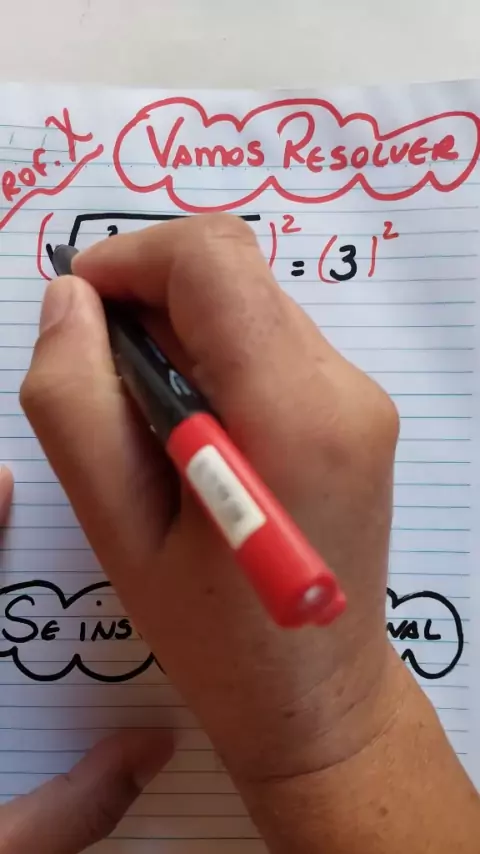 ROF. X
VAMOS RESOLVER
(√ 2 )² = (3)²
SE INS NAL